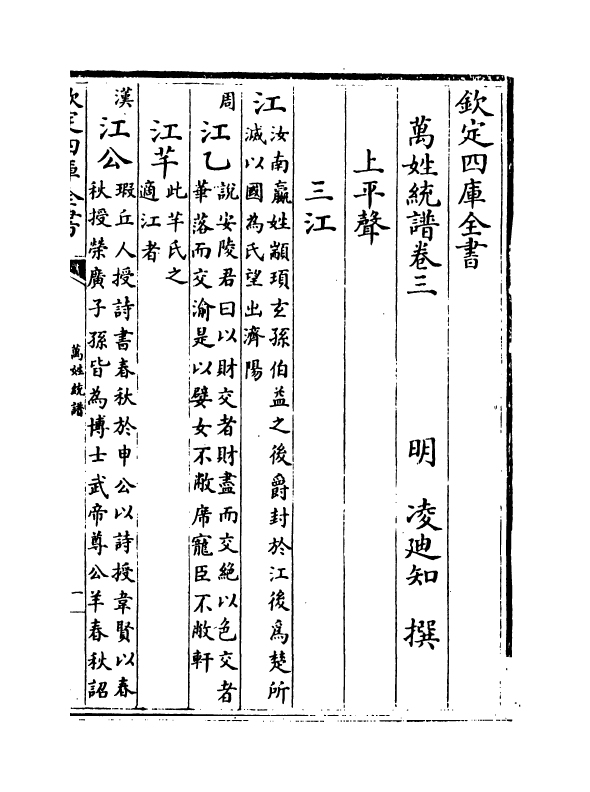 欽定四庫全書
萬姓統譜卷三
明 凌廸知 撰
上平聲
三江
江
汝南嬴姓顓頊玄孫伯益之後爵封於江後爲楚所
滅以國為氏望出濟陽
周
江乙
說安陵君曰以財交者財盡而交絶以色交者
華落而交渝是以嬖女不敝席寵臣不敝軒
江芊
此芊氏之
適江者
漢
江公
瑕丘人授詩書春秋於申公以詩授韋賢以春
秋授榮廣子孫皆為博士武帝尊公羊春秋詔
欽定四庫全書
萬姓統譜
一